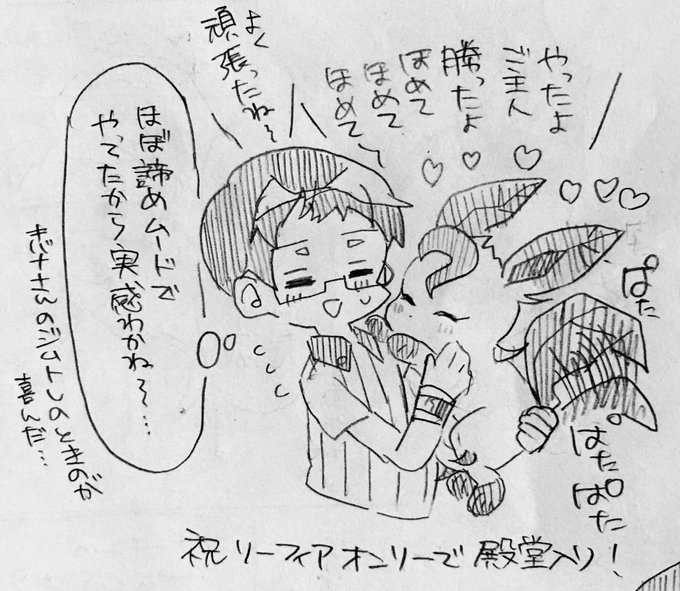 やったよ
ご主人
勝ったよ
ほめて
ほめて
ほめて
よく
頑張ったね〜
ほぼ諦めムードで
やってたから実感わかね〜…
キバナさんのジムトレのときのが
喜んだ…
ぱた
ぱたぱた
祝リーフィアオンリーで殿堂入り!